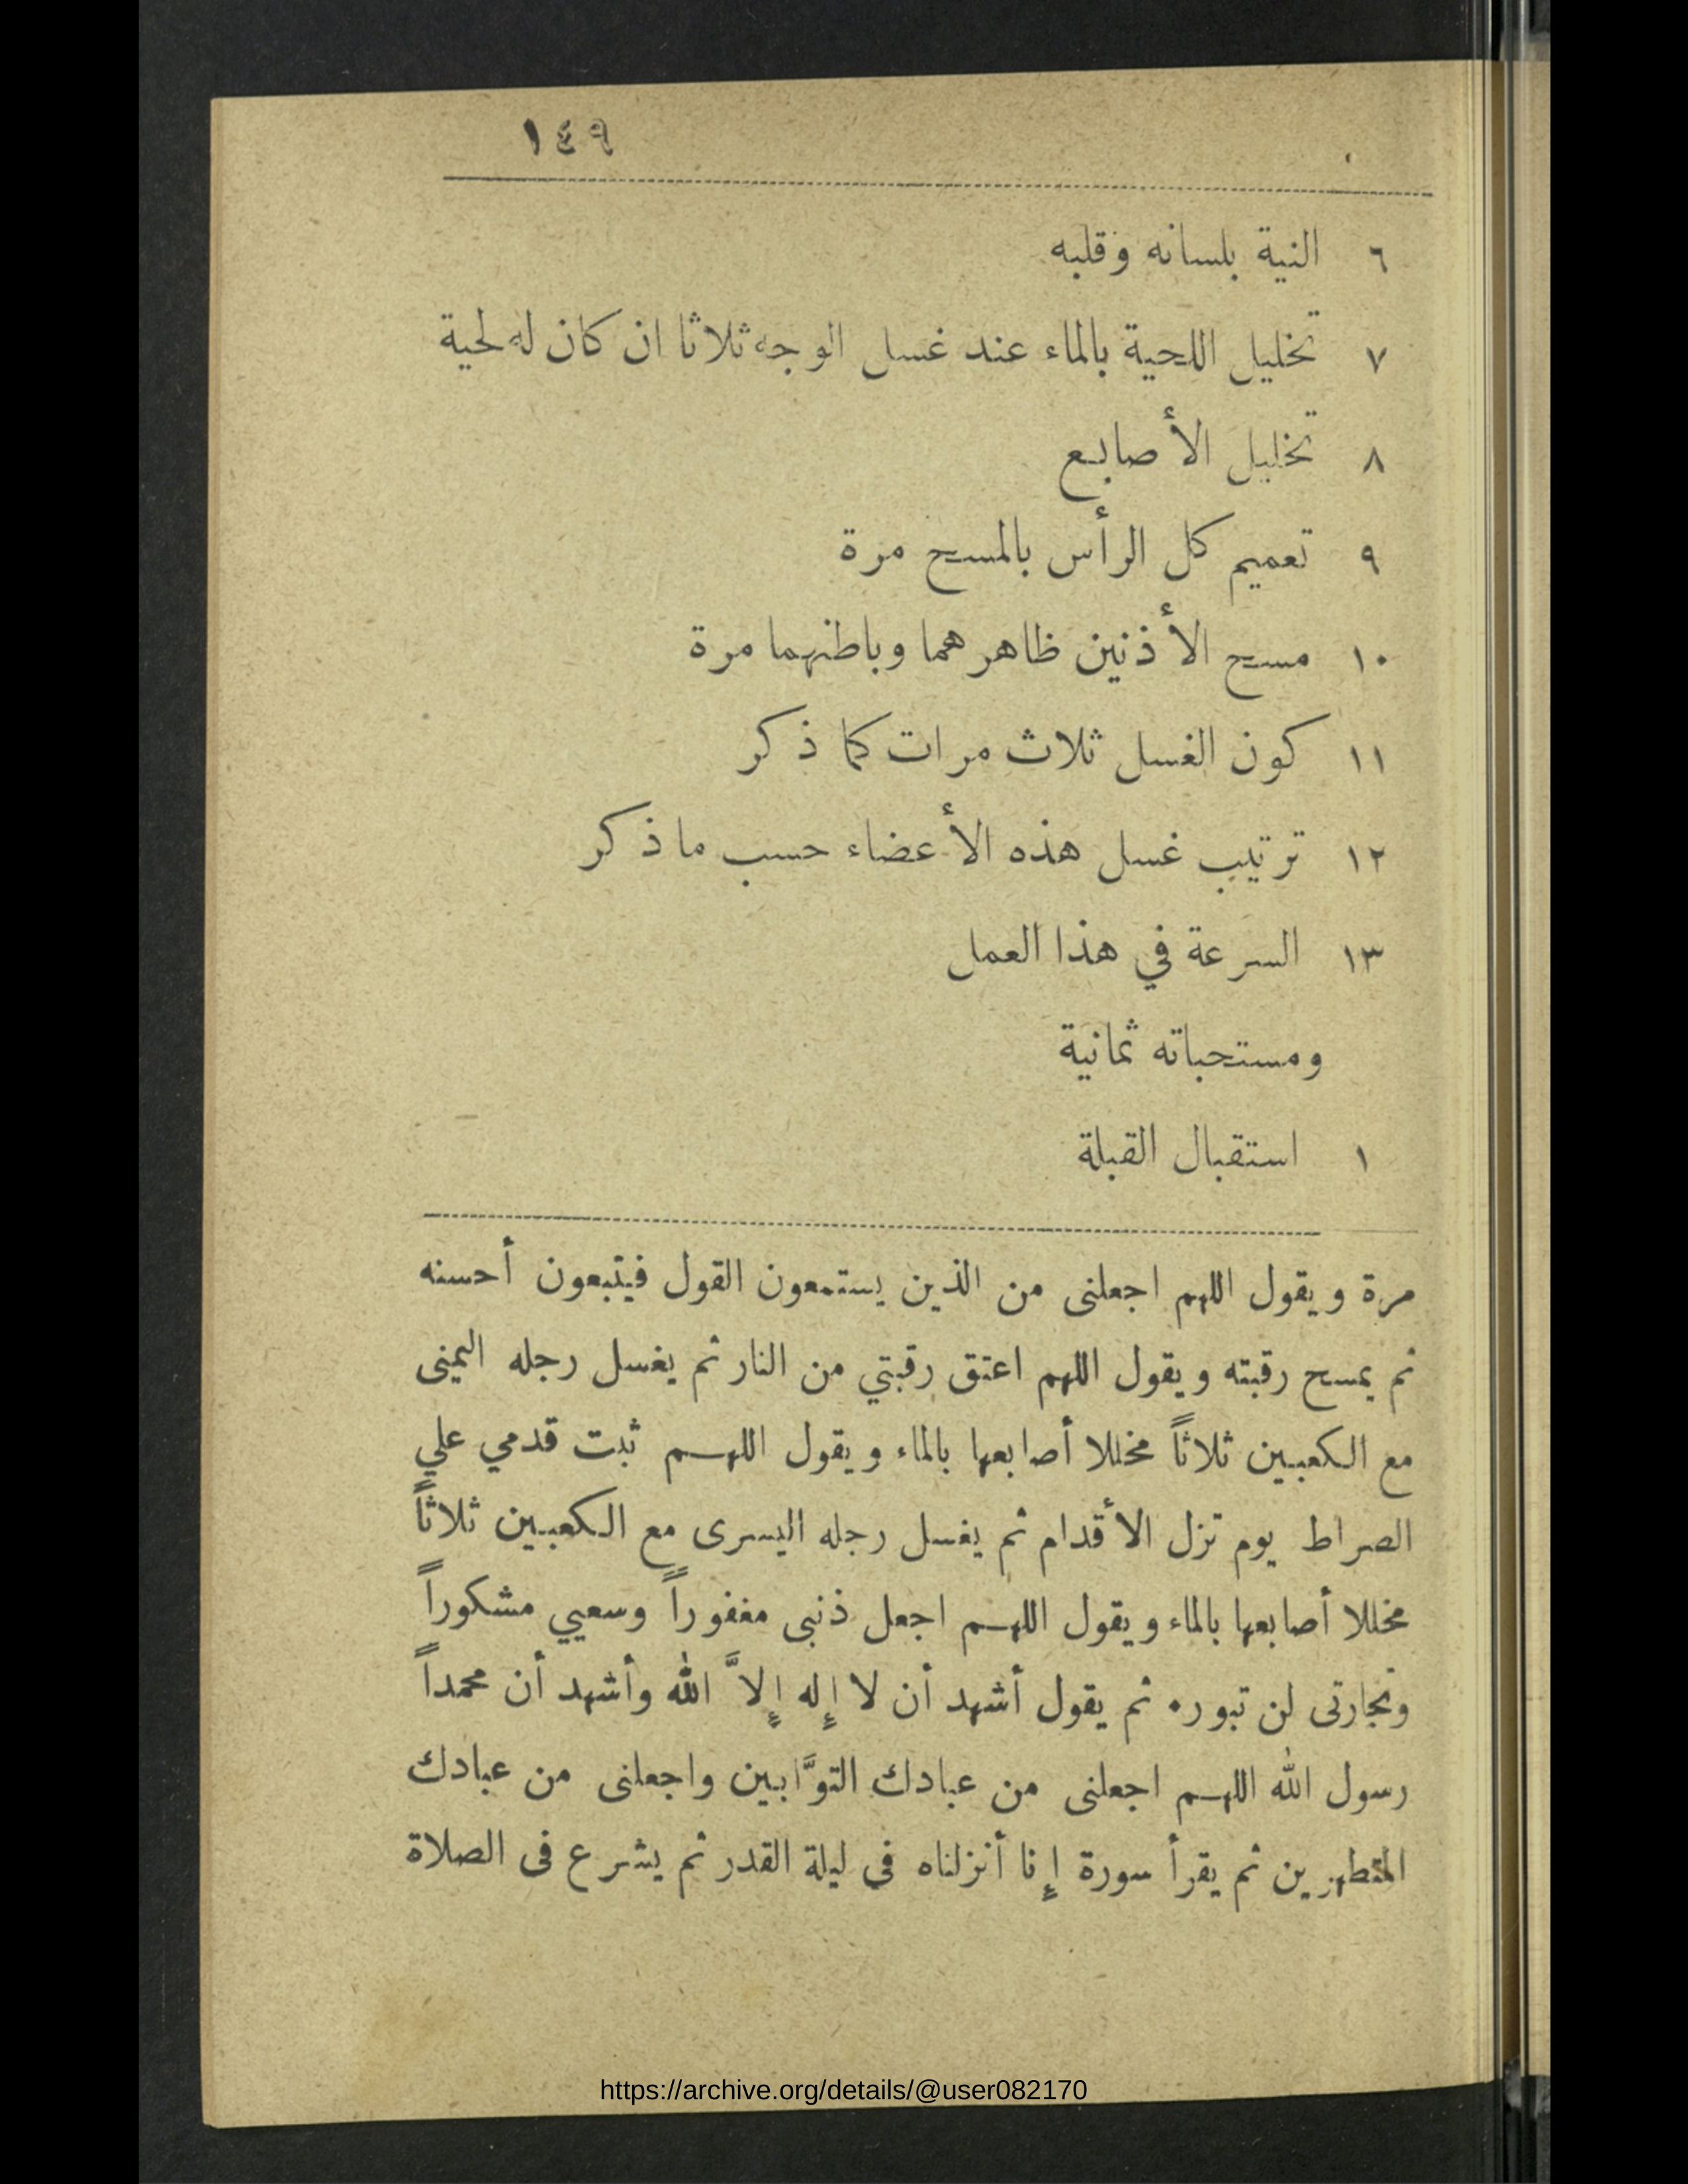 ١٤٩
٦ النية بلسانه وقلبه
٧ تخليل اللحية بالماء عند غسل الوجه ثلاثا ان كان له لحية
٨ تخليل الأصابع
٩ تعميم كل الرأس بالمسح مرة
١٠ مسح الأذنين ظاهرهما وباطنهما مرة
١١ كون الغسل ثلاث مرات كما ذكر
١٢ ترتيب غسل هذه الأعضاء حسب ما ذكر
١٣ السرعة في هذا العمل
ومستحباته ثمانية
١ استقبال القبلة
مرة ويقول اللهم اجعلنى من الذين يستمعون القول فيتبعون أحسنه
ثم يمسح رقبته ويقول اللهم اعتق رقبتي من النار ثم يغسل رجله اليمنى
مع الكعبين ثلاثاً مخللا أصابعها بالماء ويقول اللهم ثبت قدمي علي
الصراط يوم تزل الأقدام ثم يغسل رجله اليسرى مع الكعبين ثلاثاً
مخللا أصابعها بالماء ويقول اللهم اجعل ذنبى مغفوراً وسعيي مشكوراً
وتجارتى لن تبور. ثم يقول أشهد أن لا إله إلاَّ الله وأشهد أن محمداً
رسول الله اللهم اجعلنى من عبادك التوَّابين واجعلنى من عبادك
المتطهرين ثم يقرأ سورة إنا أنزلناه فى ليلة القدر ثم يشرع فى الصلاة
https://archive.org/details/@user082170